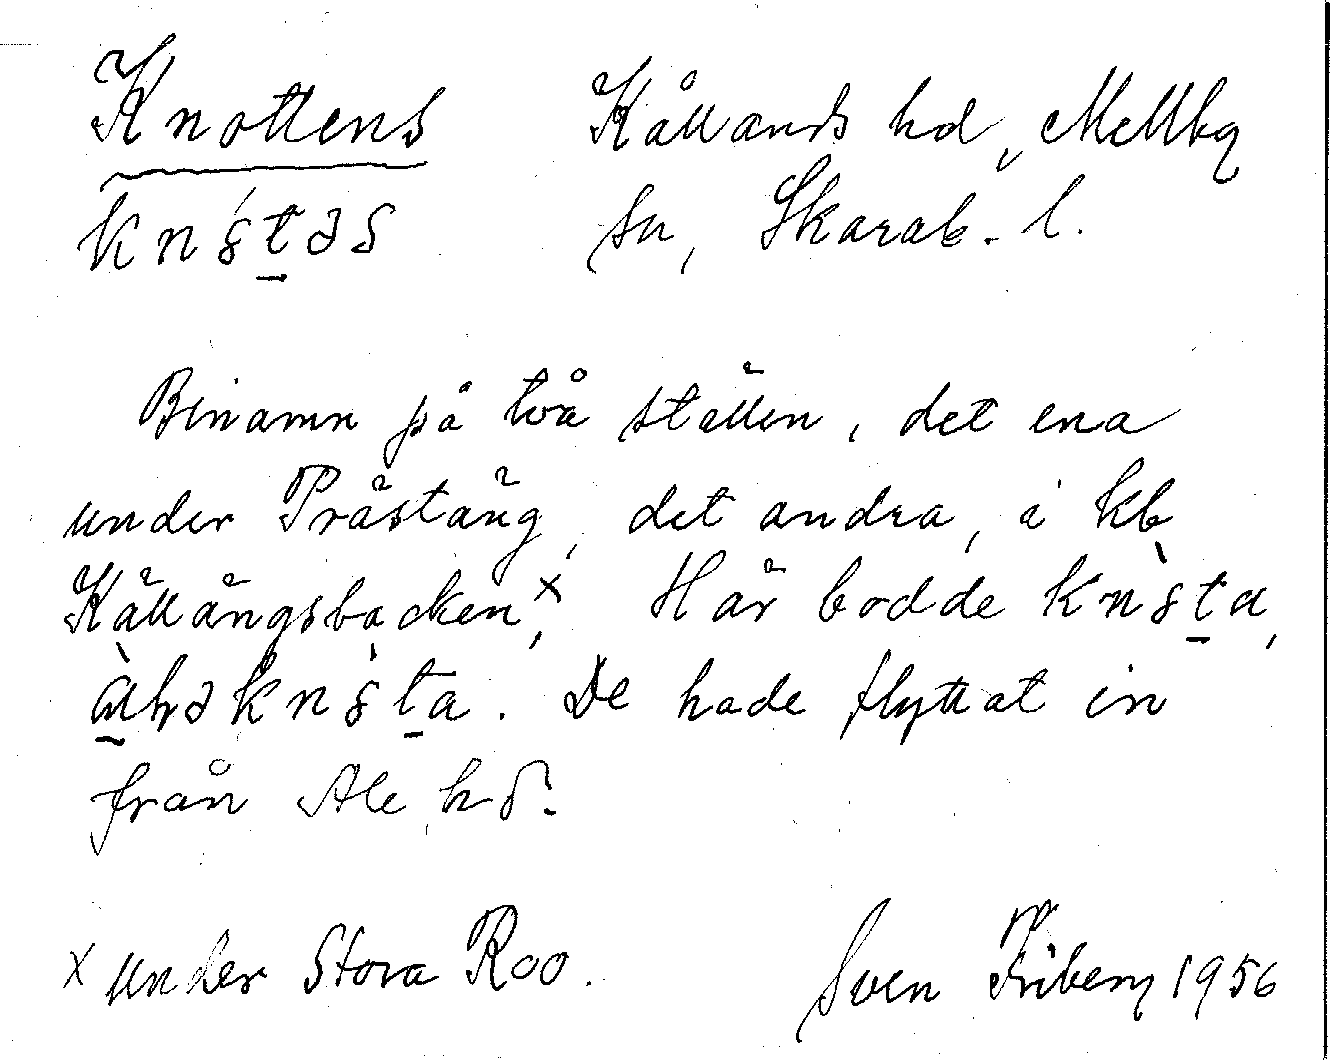 Knottens
kns̱təs
Kållands hd, Mellby
sn, Skarab. l.
Binamn på två ställen, det ena
under Prästäng, det andra, i kb
Källängsbacken,x Här bodde
. De hade flyttat in
från Ale hd.
x under Stora Roo.
Sven Friberg 1956